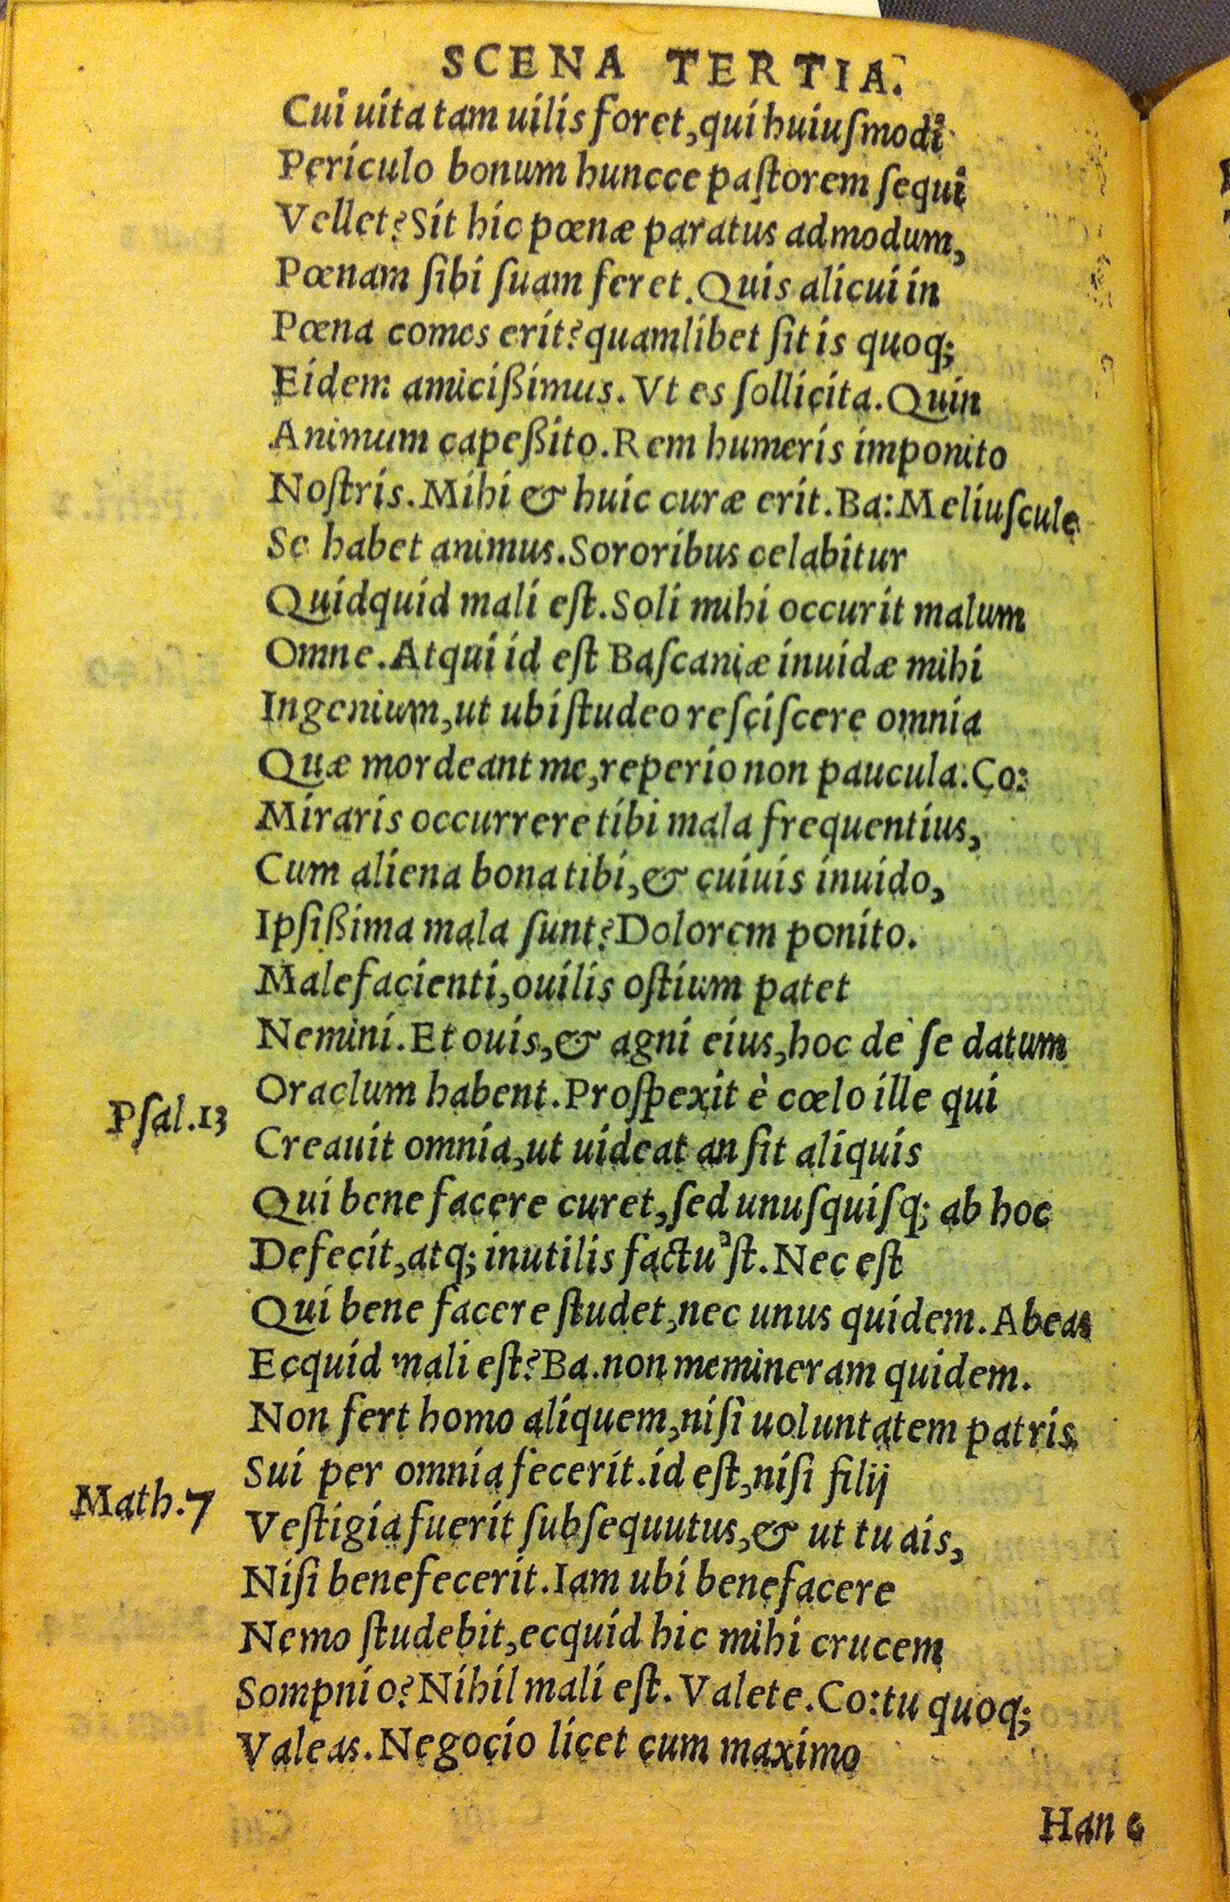 SCENA TERTIA.
Cui uita tam uilis foret, qui huiuſmodi
Periculo bonum huncce paſtorem ſequi
Vellet? Sit hic pœnæ paratus admodum,
Pœnam ſibi ſuam feret. Quis alicui in
Pœna comes erit? quamlibet ſit is quoq;
Eidem amicißimus. Vt es ſollicita. Quin
Animum capeßito. Rem humeris imponito
Noſtris. Mihi & huic curæ erit. Ba: Meliuſcule
Se habet animus. Sororibus celabitur
Quidquid mali eſt. Soli mihi occurit malum
Omne. Atqui id eſt Baſcaniæ inuidæ mihi
Ingenium, ut ubi ſtudeo reſciſcere omnia
Quæ mordeant me, reperio non paucula. Co:
Miraris occurrere tibi mala frequentius,
Cum aliena bona tibi, & cuiuis inuido,
Ipſißima mala ſunt? Dolorem ponito.
Malefacienti, ouilis oſtium patet
Nemini. Et ouis, & agni eius, hoc de ſe datum
Oraclum habent. Proſpexit è cœlo ille qui
Psal. 13
Creauit omnia, ut uideat an ſit aliquis
Qui bene facere curet, ſed unuſquiſq; ab hoc
Defecit, atq; inutilis factu'ſt. Nec eſt
Qui bene facere ſtudet, nec unus quidem. Abeas
Ecquid mali eſt? Ba. non memineram quidem.
Non fert homo aliquem, niſi uoluntatem patris
Sui per omnia fecerit. id eſt, niſi filij
Math. 7
Veſtigia fuerit ſubſequutus, & ut tu ais,
Niſi benefecerit. Iam ubi benefacere
Nemo ſtudebit, ecquid hic mihi crucem
Sompnio? Nihil mali eſt. Valete. Co: tu quoq;
Valeas. Negocio licet cum maximo
Han c